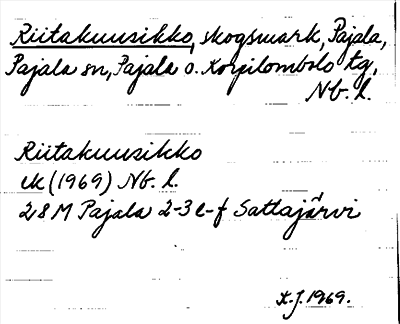 Riitakuusikko, skogsmark, Pajala,
Pajala sn, Pajala o. Korpilombolo tg,
Nb. l.
Riitakuusikko
ek (1969) Nb. l.
28M Pajala 2-3 e-f Sattajärvi
K.J. 1969.